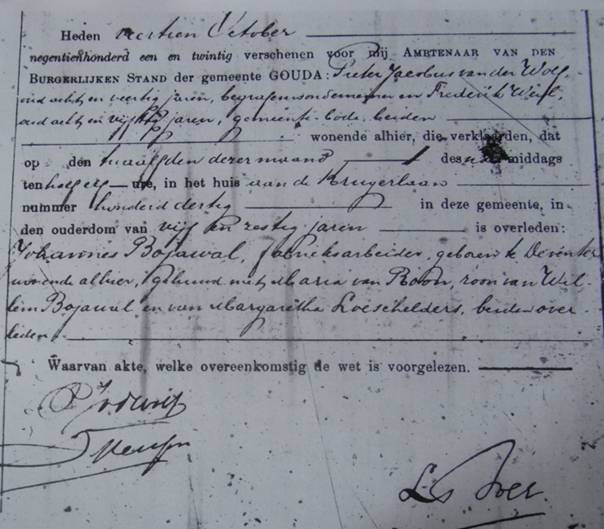 Heden veertien October
negentienhonderd een en twintig verschenen voor mij AMBTENAAR VAN DEN
BURGERLIJKEN STAND der gemeente GOUDA: Pieter Jacobus van der Wolf
oud acht en veertig jaren, begrafenisondernemer en Frederik
oud acht en vijftig jaren, gemeente-bode, beiden
wonende alhier, die verklaarden, dat
op den twaalfden dezer maand des middags
ten half elf ure, in het huis aan de Krugerlaan
nummer honderd dertig in deze gemeente, in
den ouderdom van vijf en zestig jaren is overleden:
Johannes Bojawal, fabrieksarbeider, geboren te Deventer
wonende alhier, gehuwd met Maria van Roon, zoon van Wil-
lem Bojawal en van Margaretha Loeschelders, beiden over-
leden
Waarvan akte, welke overeenkomstig de wet is voorgelezen.